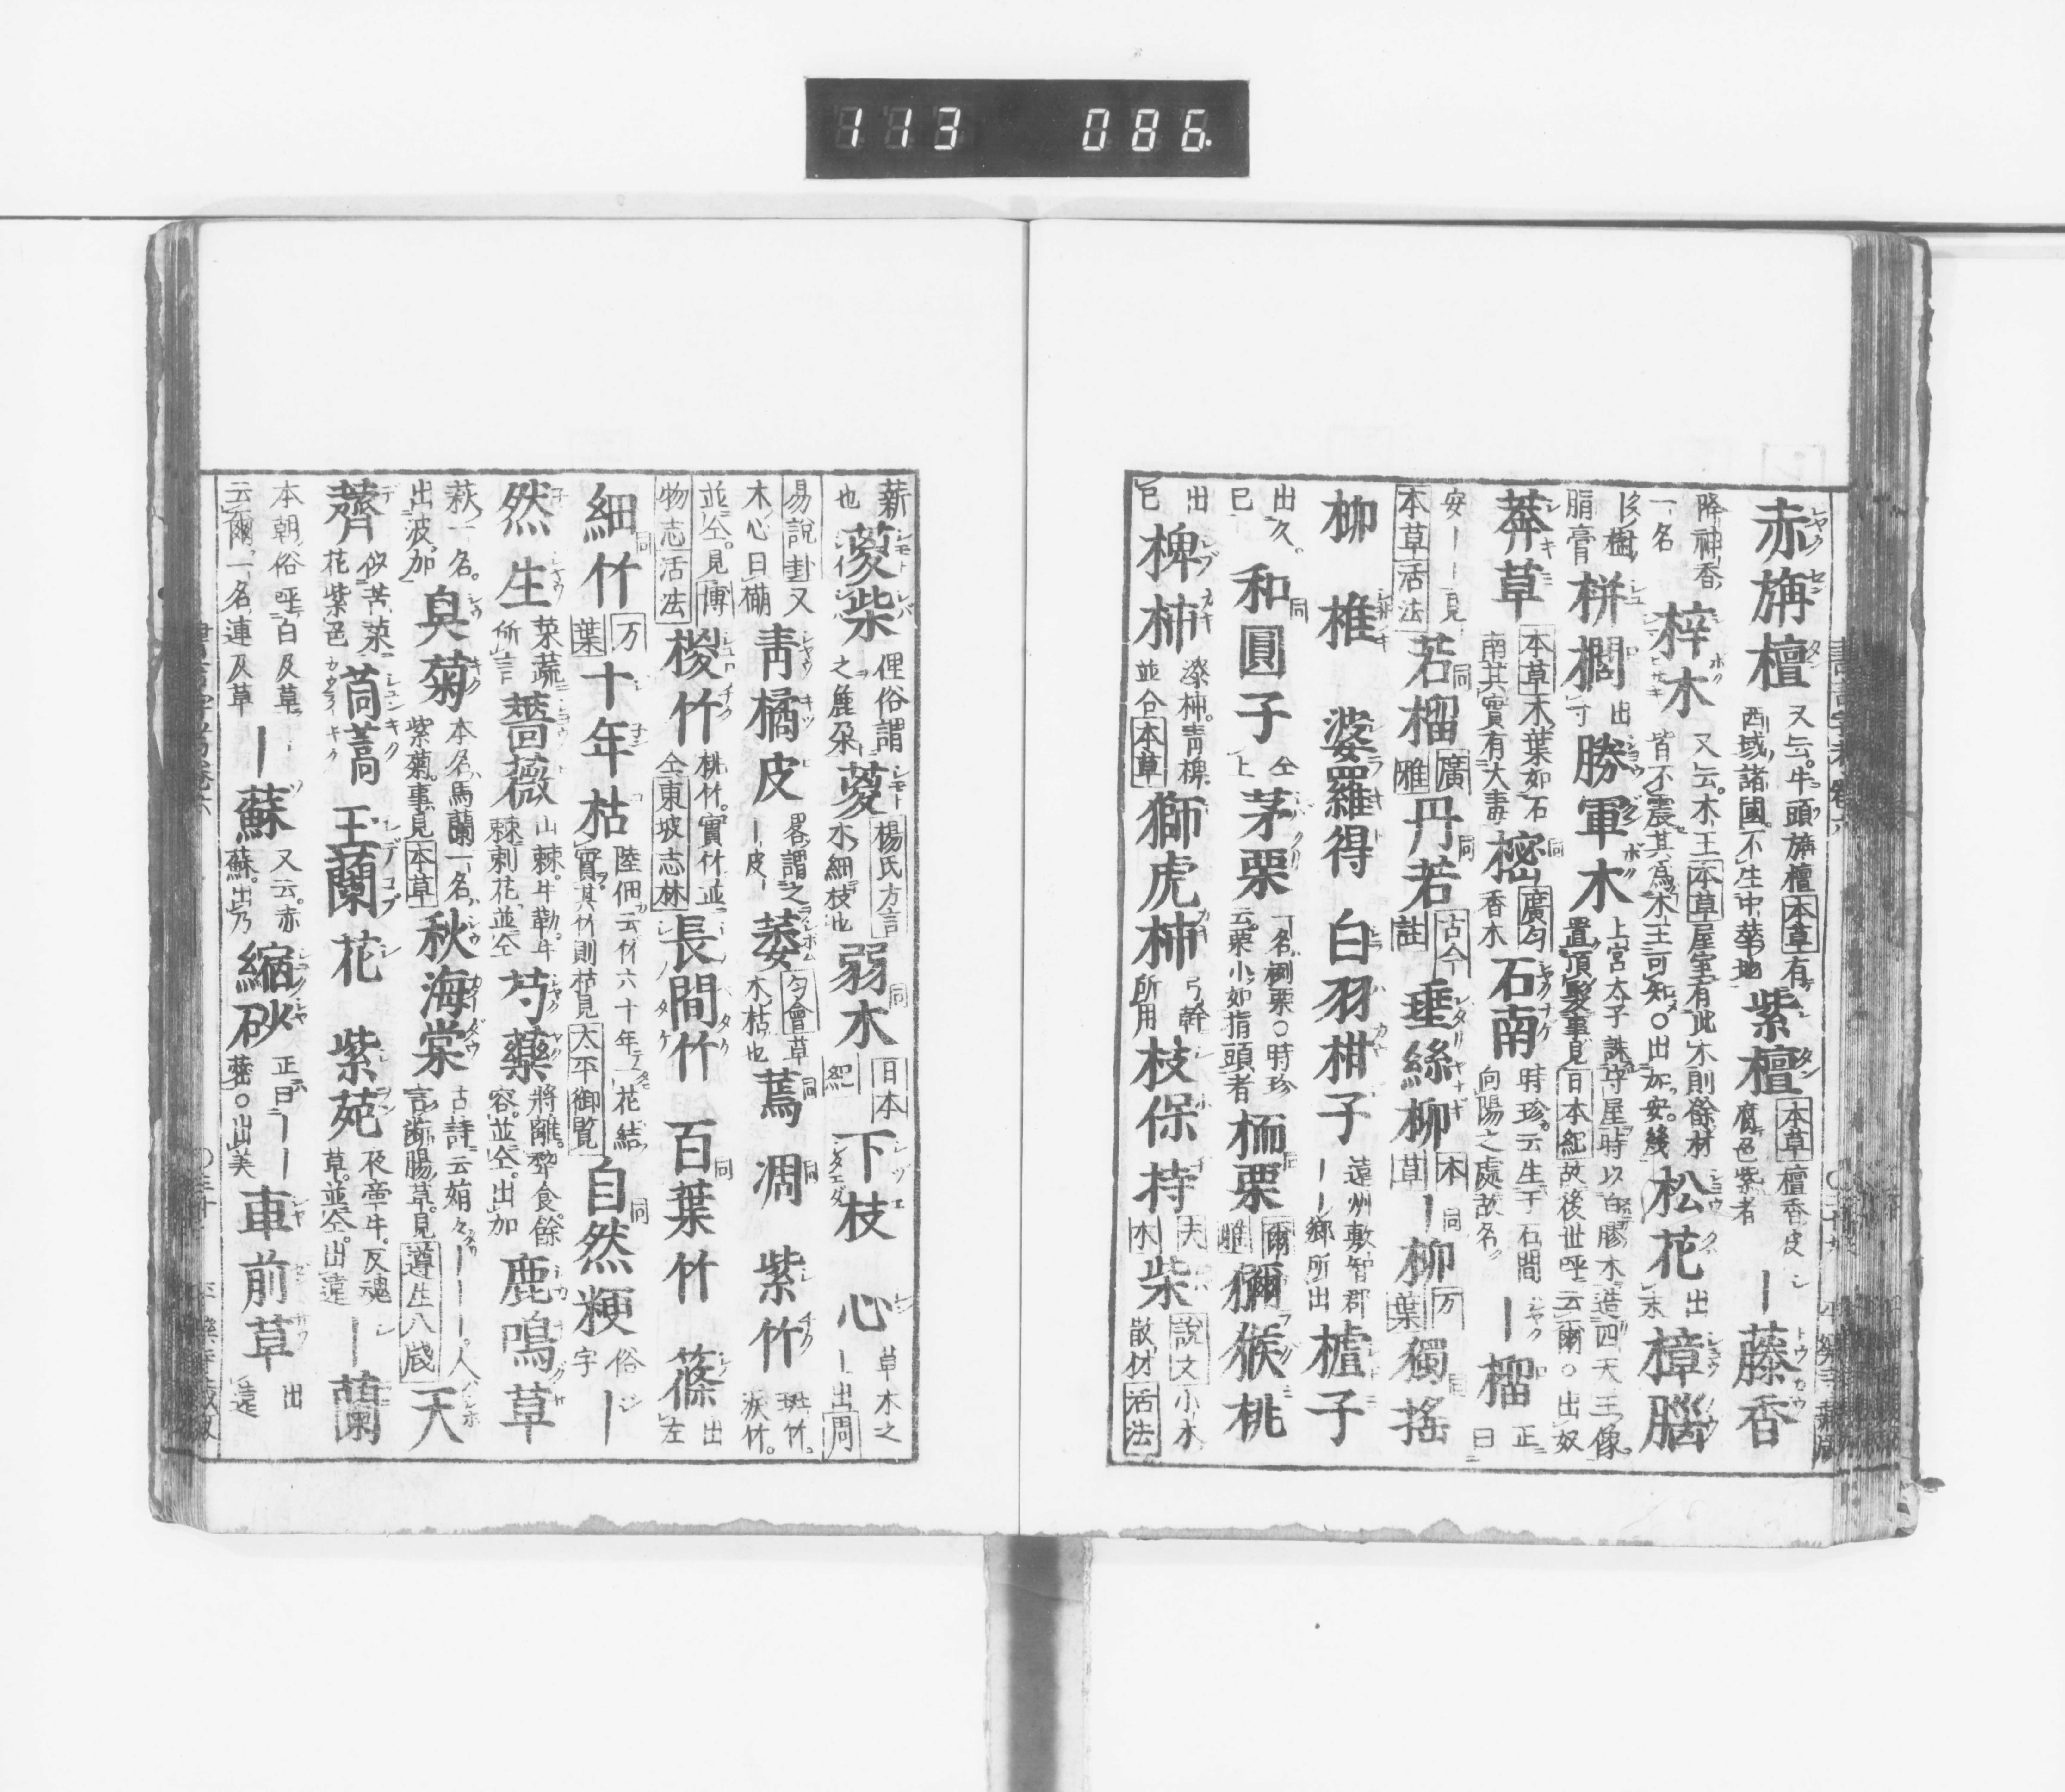 113 086
赤旃檀 又云牛頭旃檀本草有西域諸國不生中華地 紫檀 本草檀香皮腐色紫者 ｜藤香
降神香一名 梓木 又云木王本草屋室有此木則餘材皆不震其為木王可知○出加安幾 松花 出末 樟腦
樹脂膏 栟櫚 出寸 勝軍木 上宮太子誅守屋時以白膠木造四天王像置頂髮事見日本紀故後世呼云爾○出奴
莽草 本草木葉如石南其實有大毒 櫁 廣匀香木 石南 時珍云生于石間向陽之處故名 ｜榴 正曰
安｜｜見本草活法 若榴 廣雅 丹若 古今註 垂絲柳 本草 ｜柳 万葉 獨搖
柳 椎 婆羅得 白羽柑子 遠州敷智郡｜｜鄉所出 櫨子
出久巳 和圓子 仝上 茅栗 一名栵栗○時珍云栗小如指頭者 栭栗 爾雅 獼猴桃
出巳 椑柿 漆柿青椑並仝本草 獅虎柿 弓幹所用 枝保持 夫木 柴 說文小木散材活法
薪也 葼柴 俚俗謂之麁朶 葼 楊氏方言木細枝也 弱木 日本紀 下枝 心 草木之｜出周
易說卦又木心曰 青橘皮 畧謂之｜皮 萎 匀會草木枯也 蔫 凋 紫竹 斑竹淚竹
並仝見博物志活法 椶竹 桃竹實竹並仝東坡志林 長間竹 百葉竹 篠 出左
細竹 万葉 十年枯 陸佃云竹六十年一花結實其竹則枯見太平御覧 自然粳 俗字 ｜
然生 菜蔬所言 薔薇 山棘牛勒牛棘刺花並仝 芍藥 將離犂食餘容並仝出加 鹿鳴草
萩一名出波加 臭菊 本名馬蘭一名紫菊事見本草 秋海棠 古詩云娟々｜｜｜人言斷腸草見遵生八牋 天
薺 似苦菜花紫色 茼蒿 玉蘭花 紫苑 夜牽牛反魂草並仝出遠 ｜蘭
本朝俗呼白及草云爾一名連及草 ｜蘇 又云赤蘇出乃 縮砂 正曰｜｜蔤○出美 車前草 出遠